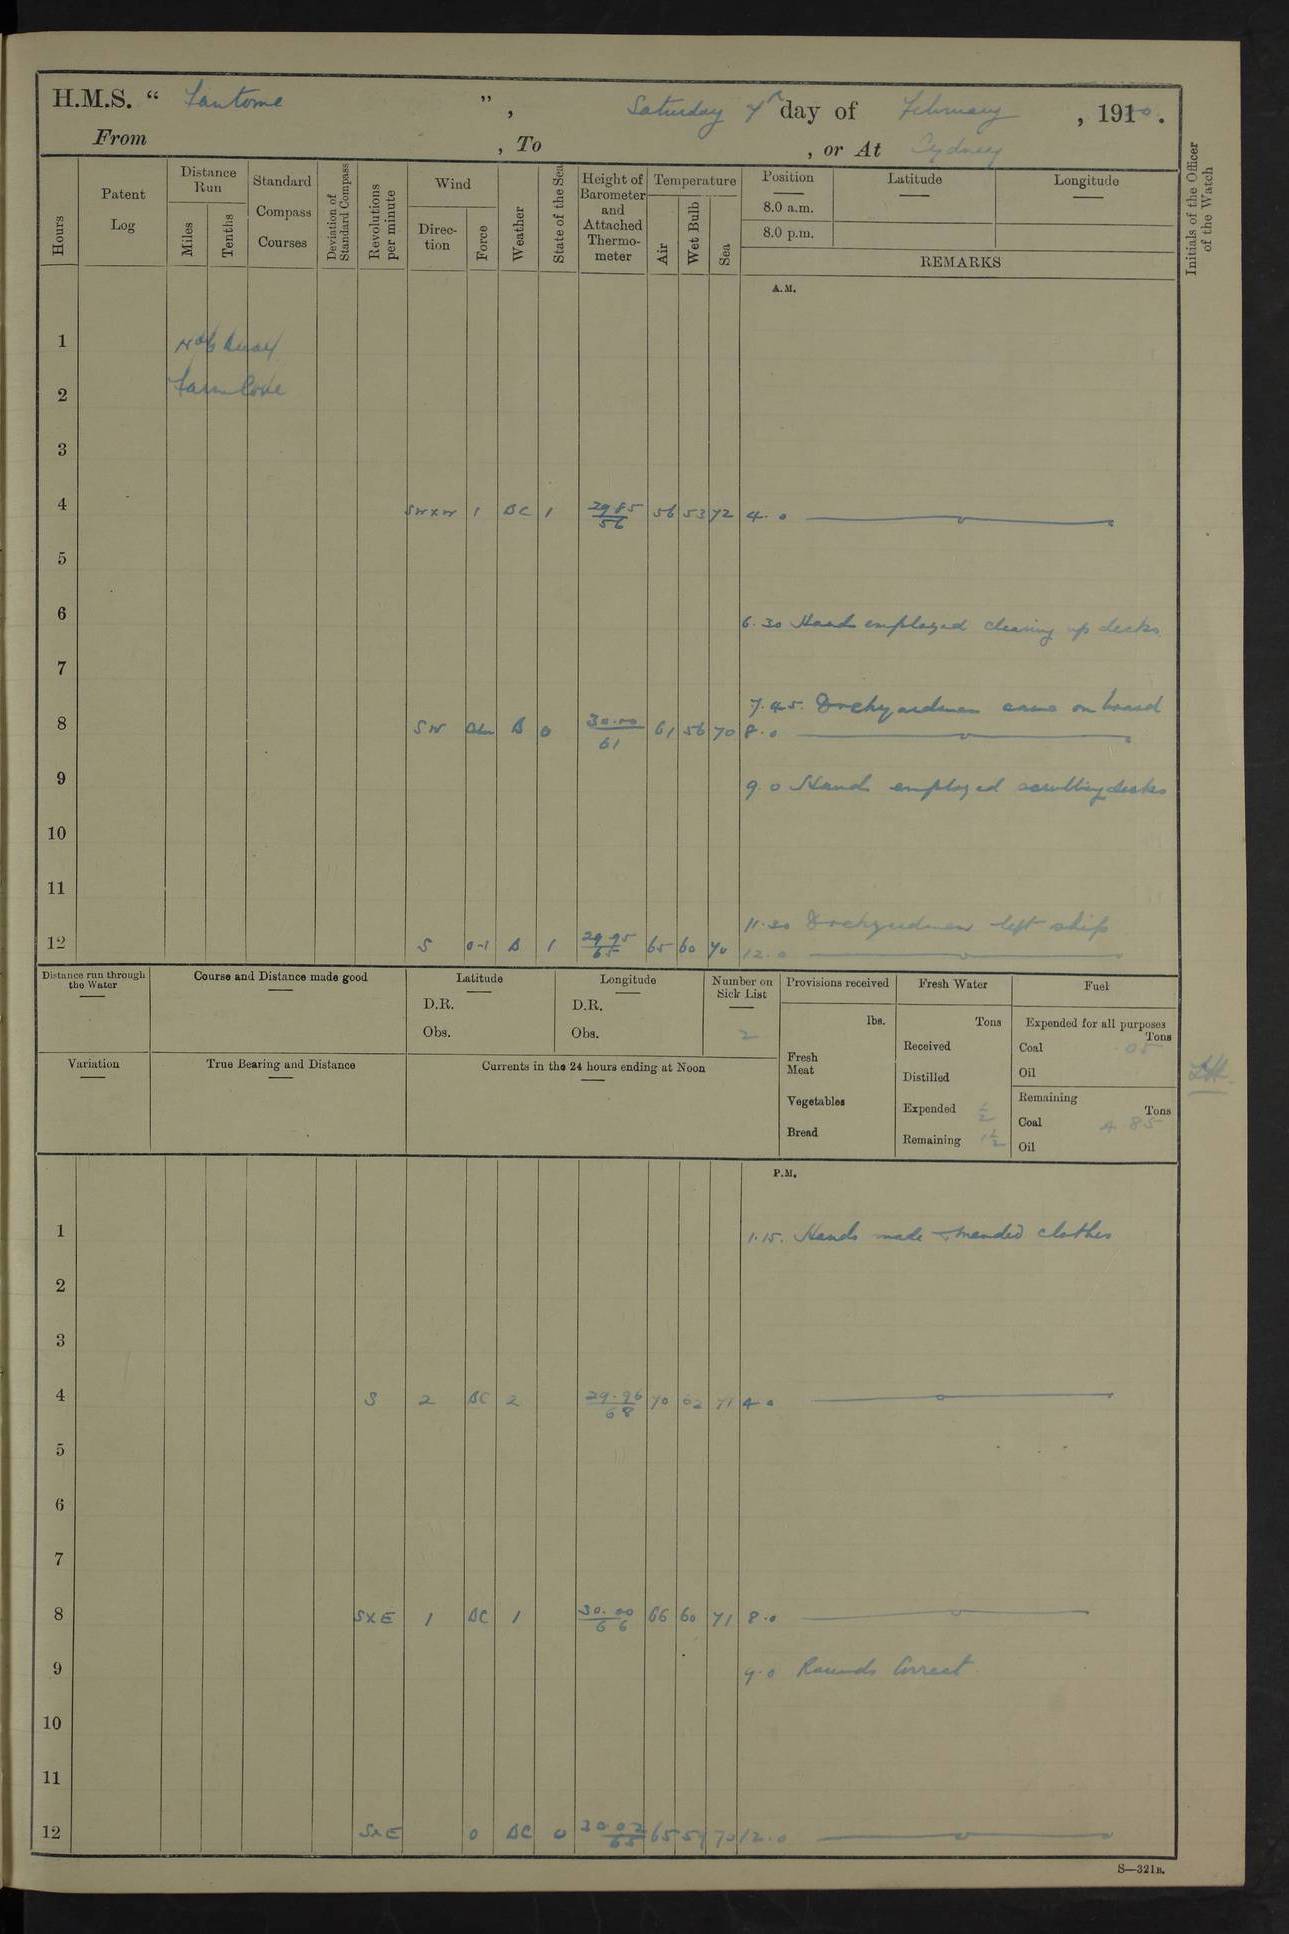 H.M.S. “ Fantome ”, Saturday 7th day of February, 1910.
From , To , or At Sydney
Hours
Patent Log
Distance Run
Miles
Tenths
Standard Compass Courses
Deviation of Standard Compass
Revolutions per minute
Wind
Direc-tion
Force
Weather
State of the Sea
Height of Barometer and Attached Thermo-meter
Temperature
Air
Wet Bulb
Sea
Position
8.0 a.m.
8.0 p.m.
Latitude
Longitude
REMARKS
Initials of the Officer of the Watch
A.M.
1
Farm Cove
2
3
4 SWxW 1 BC 1 29 85/56 56 53 72 4.0
5
6
6.30 Hands employed clearing up decks
7
7.45. Dockyardmen came on board
8 SW B 0 30.00/61 61 56 70 8.0
9
9.0 Hands employed scrubbing decks
10
11
11.30 Dockyardmen left ship
12 S 0-1 B 1 29 95/65 65 60 70 12.0
Distance run through the Water
Course and Distance made good
Latitude
D.R.
Obs.
Longitude
D.R.
Obs.
Number on Sick List
2
Provisions received
lbs.
Fresh Meat
Vegetables
Bread
Fresh Water
Tons
Received
Distilled
Expended ½
Remaining 1½
Fuel
Expended for all purposes
Tons
Coal 05
Oil
Remaining
Tons
Coal 85
Oil
Variation
True Bearing and Distance
Currents in the 24 hours ending at Noon
P.M.
1
1.15. Hands made & mended clothes
2
3
4 S 2 BC 2 29.96/68 70 62 71 4.0
5
6
7
8 SxE 1 BC 1 30.00/66 66 60 71 8.0
9
9.0 Rounds Correct
10
11
12 SxE 0 BC 0 30 02/65 65 59 70 12.0
S—321B.